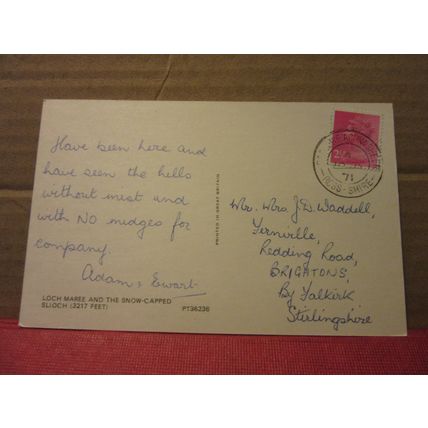 Have been here and
have seen the hills
without mist and
with NO midges for
company.
Adam & Ewart
LOCH MAREE AND THE SNOW-CAPPED
SLIOCH (3217 FEET)
PT36236
PRINTED IN GREAT BRITAIN
71
ROSS-SHIRE
Mr. Mrs. J.D. Waddell,
Fernville,
Redding Road,
BRIGHTONS,
By Falkirk
Stirlingshire